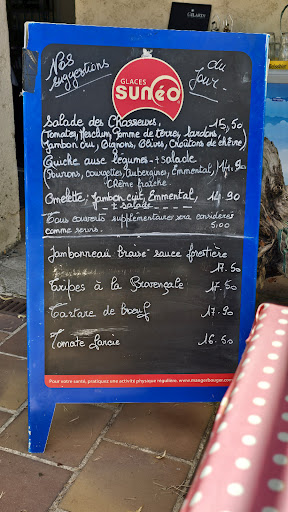 GÉLARDY
Nos suggestions du Jour.
GLACES
SUNÉO
Salade des Chasseurs, 15,50
(Tomates, Mesclun, Pomme de terre, Lardons,
Jambon cru, Oignons, Olives, Croûtons de chèvre)
Quiche aux légumes + salade
(Poivrons, courgettes, Aubergines, Emmental, 14.90
Crème fraîche.
Omelette, Jambon cuit, Emmental, 14.90
+ salade
Tous couverts supplémentaires sera considérés
comme servis. 5,00
Jambonneau braisé sauce forestière
17.50
Tripes à la Provençale 17.50
Tartare de bœuf 17.90
Tomate farcie 16.50
Pour votre santé, pratiquez une activité physique régulière. www.mangerbouger.com